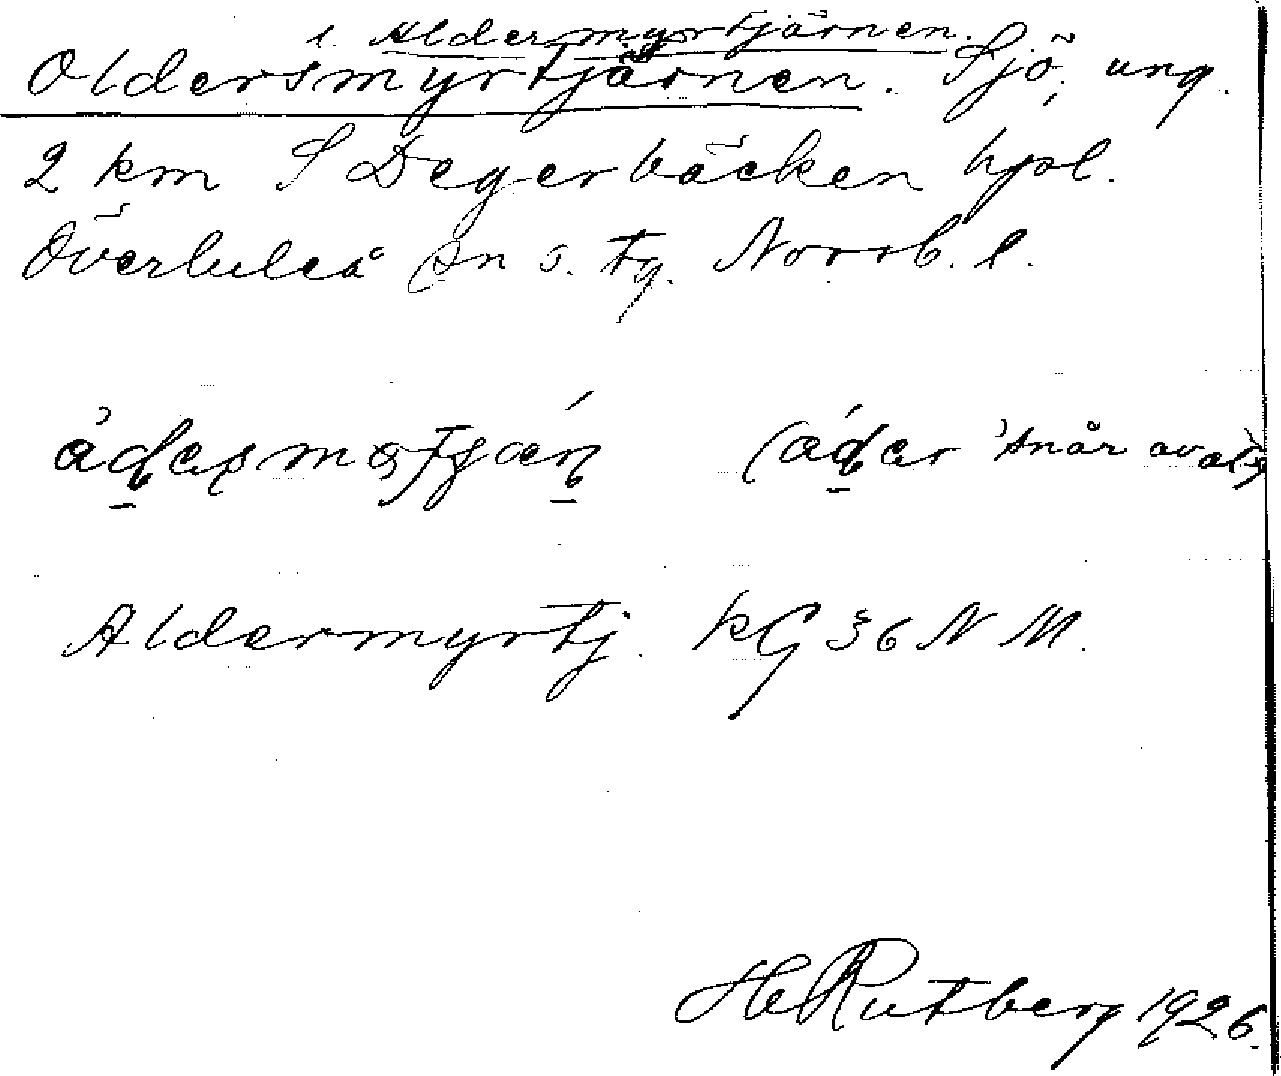 l. Aldermyrtjärnen.
Oldersmyrtjärnen. Sjö, ung.
2 km S Degerbäcken hpl.
Överluleå sn s. tg. Norrb. l.
(åder 'snår av al')
Aldermyrtj. kG 36 N M.
HeRutberg 1926.